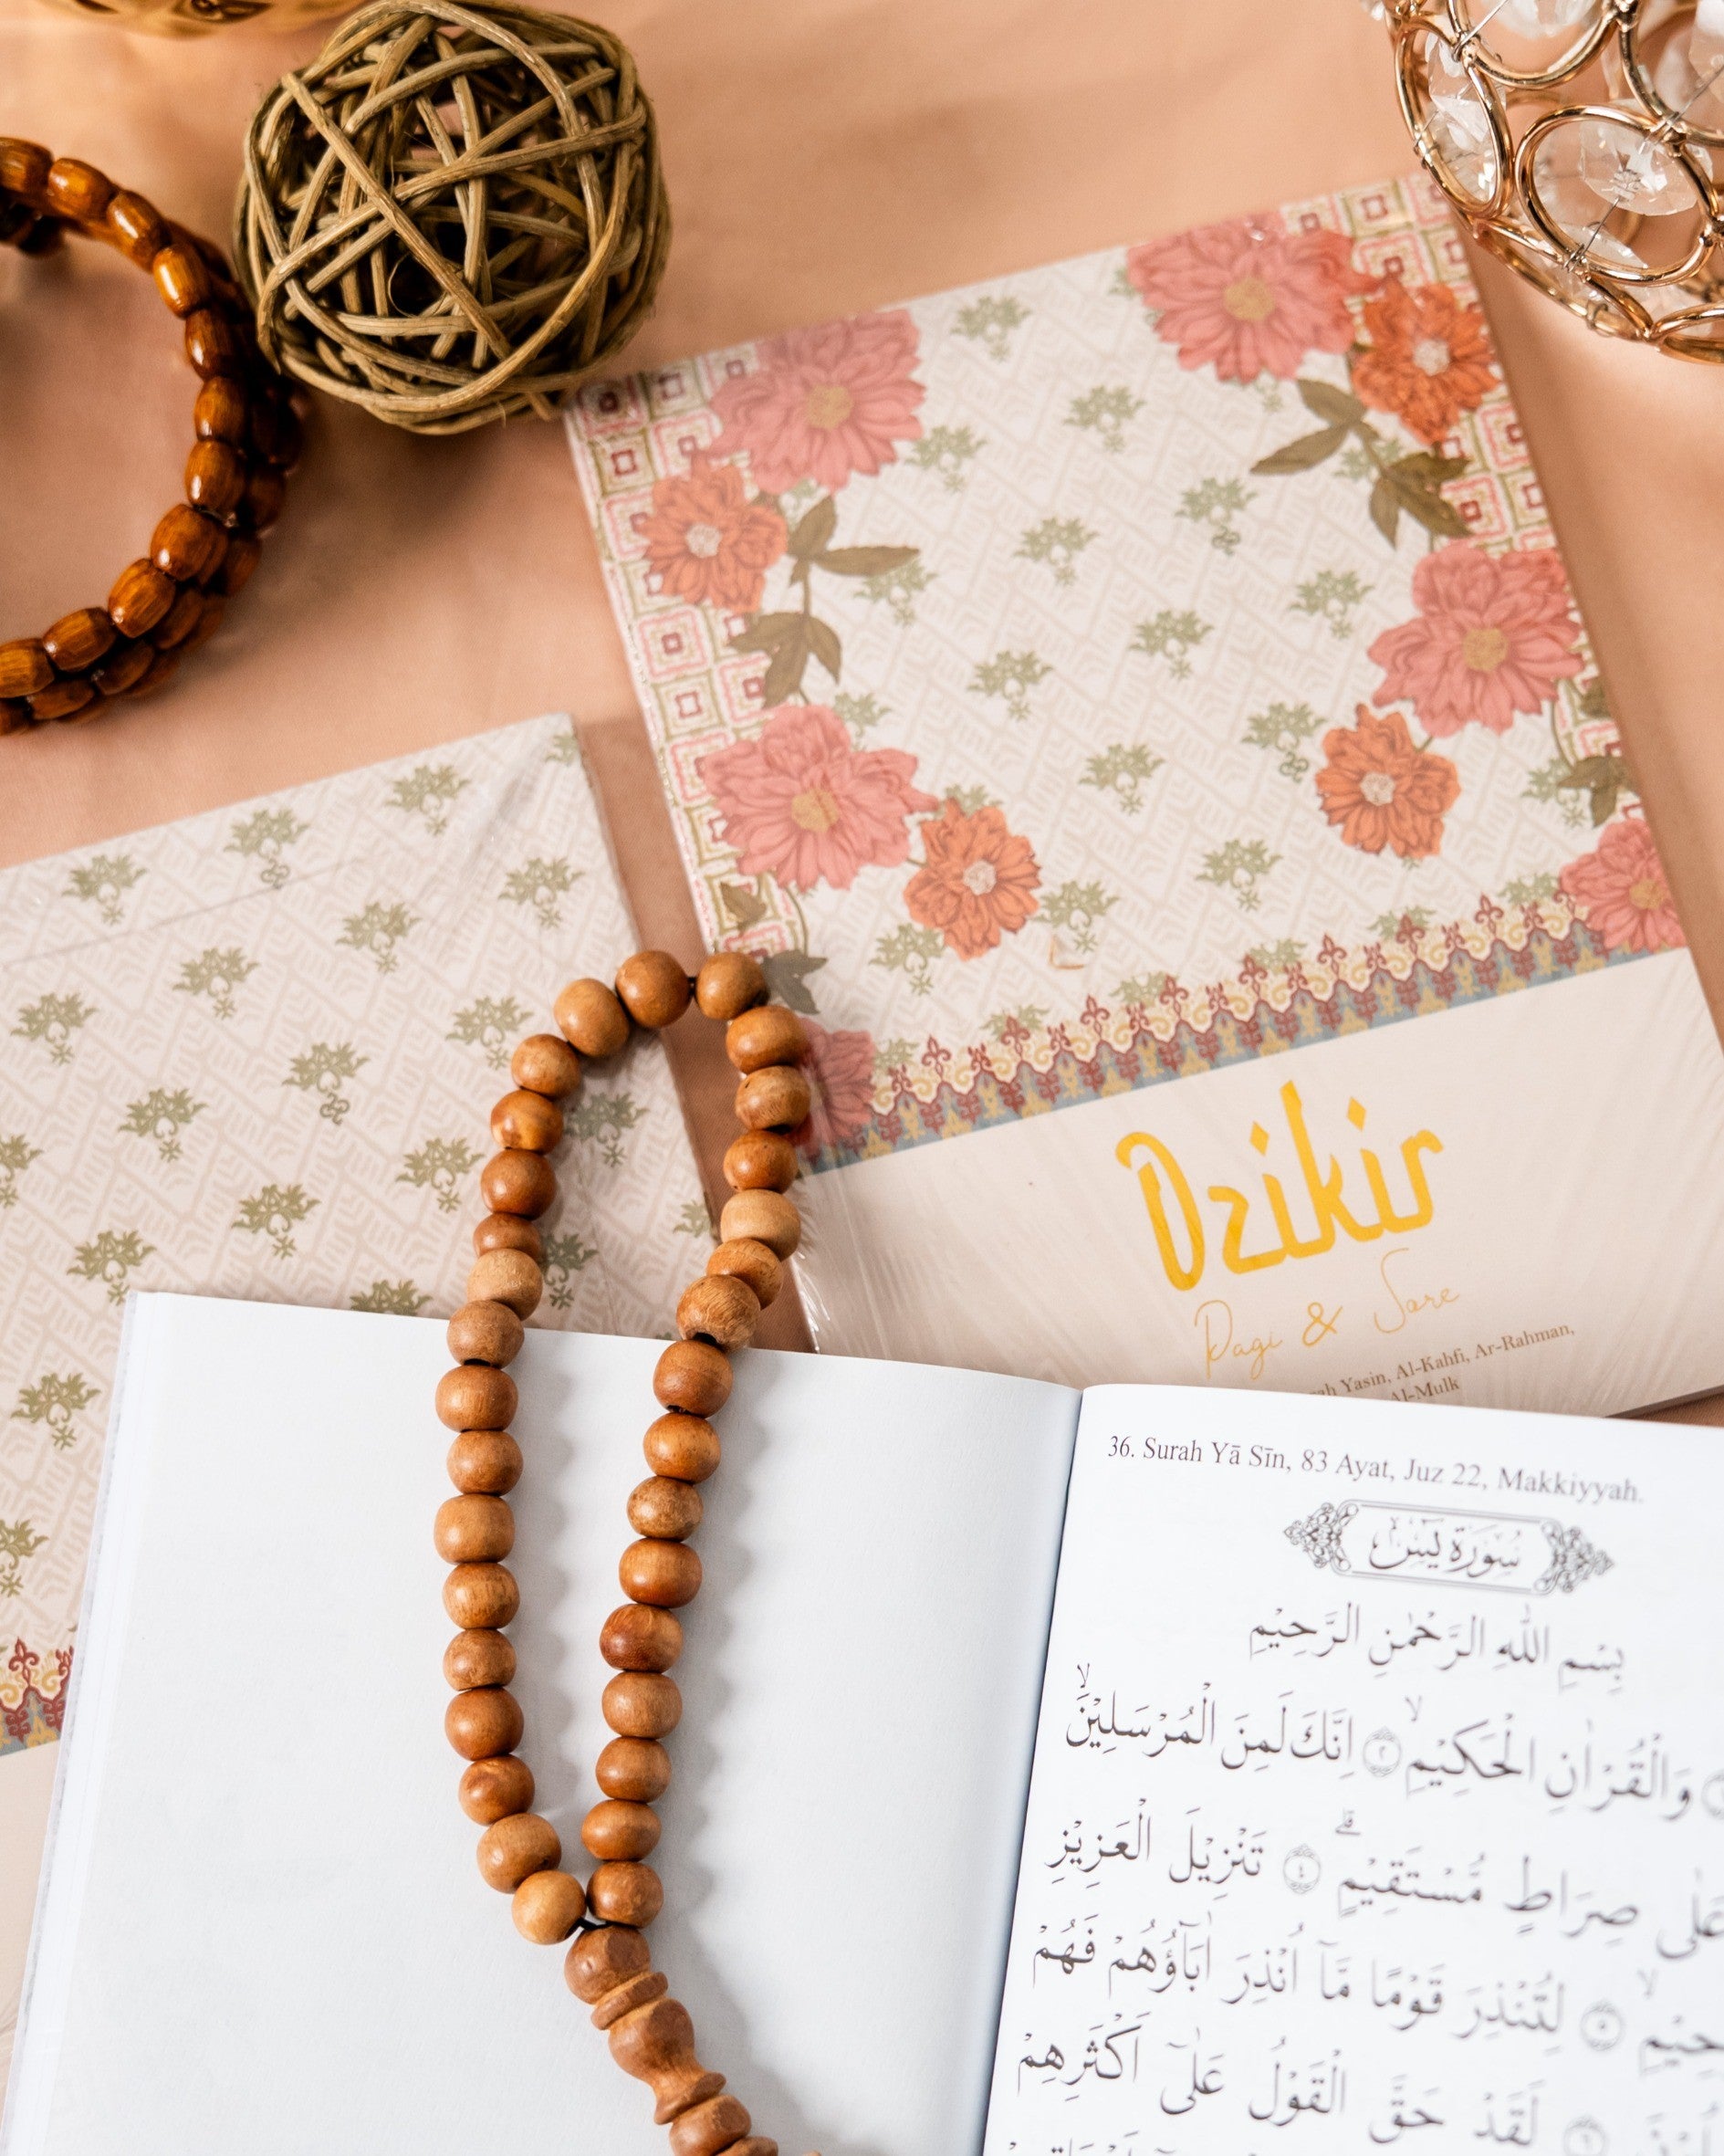 Dzikir
Pagi & Sore
Yasin, Al-Kahfi, Ar-Rahman,
Al-Mulk
36. Surah Yā Sīn, 83 Ayat, Juz 22, Makkiyyah.
سُوْرَةُ يٰسٓ
بِسْمِ اللّٰهِ الرَّحْمٰنِ الرَّحِيْمِ
وَالْقُرْاٰنِ الْحَكِيْمِۙ ٢ اِنَّكَ لَمِنَ الْمُرْسَلِيْنَۙ
عَلٰى صِرَاطٍ مُّسْتَقِيْمٍۗ ٤ تَنْزِيْلَ الْعَزِيْزِ
٥ لِتُنْذِرَ قَوْمًا مَّآ اُنْذِرَ اٰبَاۤؤُهُمْ فَهُمْ
٦ لَقَدْ حَقَّ الْقَوْلُ عَلٰٓى اَكْثَرِهِمْ